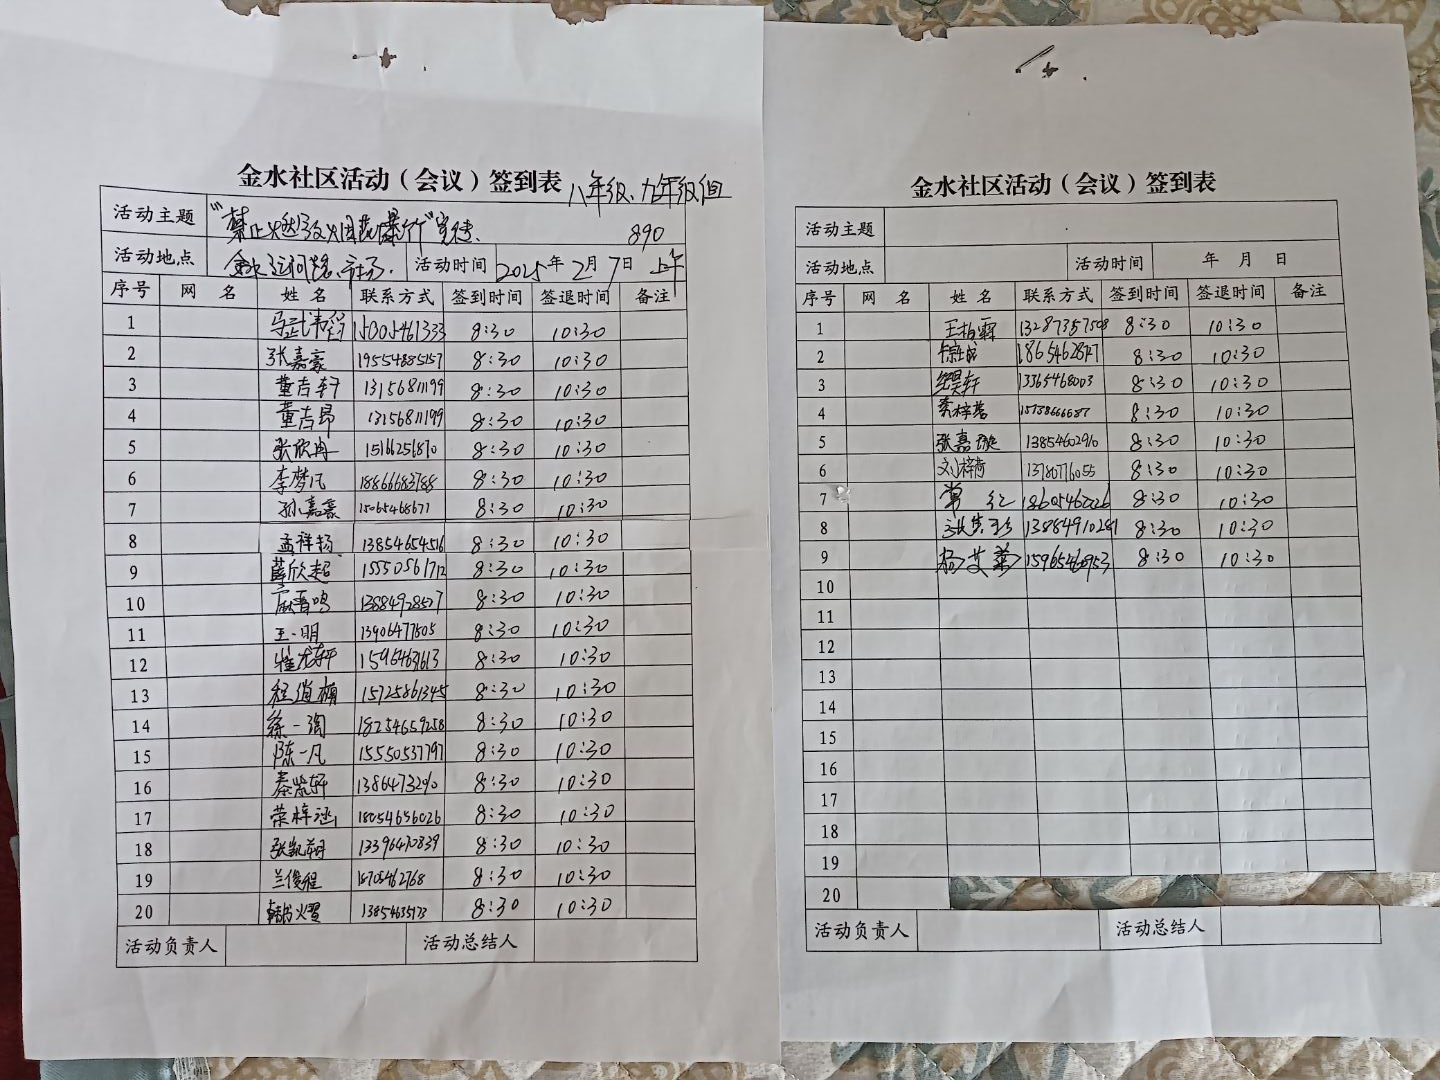 金水社区活动（会议）签到表 八年级、九年级组
活动主题 "禁止燃放烟花爆竹"宣传、 890
活动地点 活动时间 2025年2月7日 上午
序号 网 名 姓 名 联系方式 签到时间 签退时间 备注
1 15005461333 8:30 10:30
2 张嘉豪 19554885157 8:30 10:30
3 董吉轩 13156811199 8:30 10:30
4 董吉昂 13156811199 8:30 10:30
5 张欣冉 8:30 10:30
6 李梦凡 18866683788 8:30 10:30
7 孙嘉豪 15065468671 8:30 10:30
8 孟祥扬 13854654516 8:30 10:30
9 薛欣超 15550561712 8:30 10:30
10 13884928527 8:30 10:30
11 王一明 13906477505 8:30 10:30
12 崔龙轩 15964631613 8:30 10:30
13 程道楠 15725861345 8:30 10:30
14 徐一鸿 18254659258 8:30 10:30
15 陈一凡 15550537797 8:30 10:30
16 秦紫轩 13864732910 8:30 10:30
17 荣梓涵 18054656026 8:30 10:30
18 张凯翔 13396470839 8:30 10:30
19 兰俊程 18705462768 8:30 10:30
20 8:30 10:30
活动负责人 活动总结人
金水社区活动（会议）签到表
活动主题
活动地点 活动时间 年 月 日
序号 网 名 姓 名 联系方式 签到时间 签退时间 备注
1 王柏霖 13287357508 8:30 10:30
2 8:30 10:30
3 13365468003 8:30 10:30
4 8:30 10:30
5 张嘉璇 13854602910 8:30 10:30
6 刘梓荷 13780776055 8:30 10:30
7 常 红 18605462226 8:30 10:30
8 13884910281 8:30 10:30
9 杨艾菊 15965460953 8:30 10:30
10
11
12
13
14
15
16
17
18
19
20
活动负责人 活动总结人